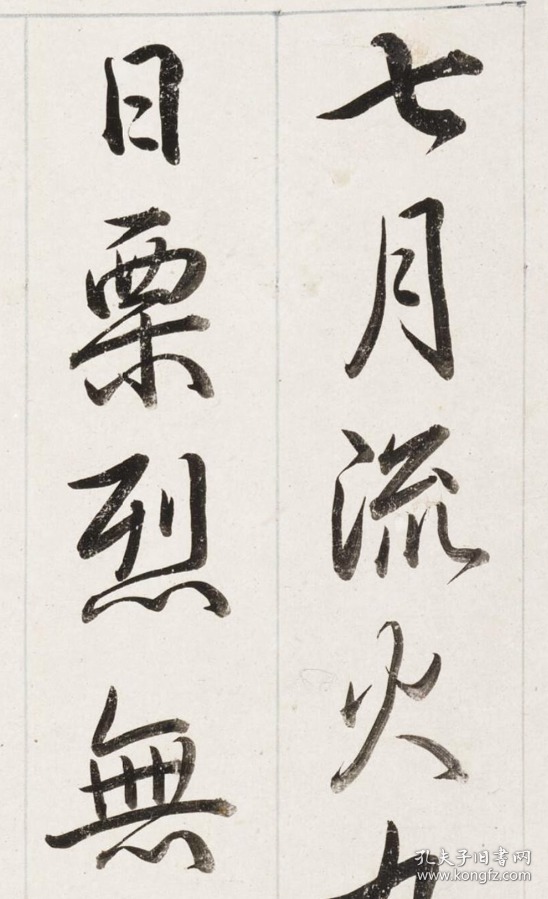 七月流火
日栗烈無
孔夫子旧书网
www.kongfz.com